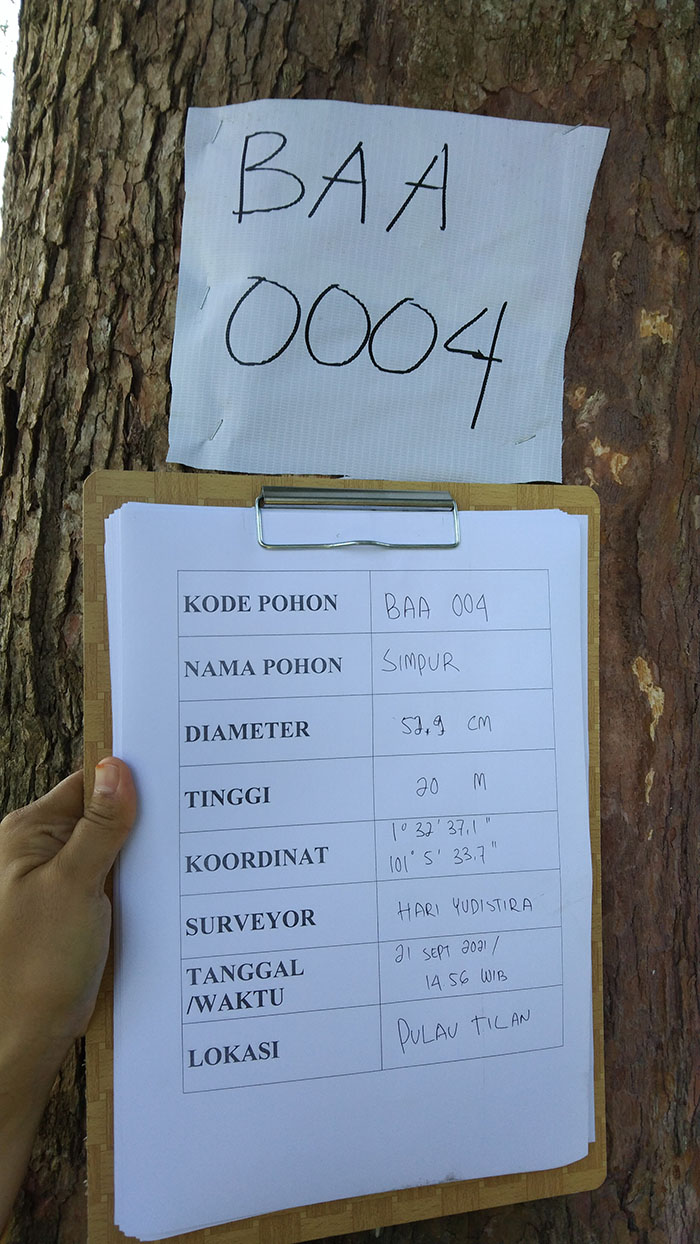 BAA
0004
KODE POHON BAA 004
NAMA POHON SIMPUR
DIAMETER 52,9 CM
TINGGI 20 M
KOORDINAT 1° 32' 37,1"
101° 5' 33,7"
SURVEYOR HARI YUDISTIRA
TANGGAL 21 SEPT 2021 /
/WAKTU 14 56 WIB
LOKASI PULAU TILAN